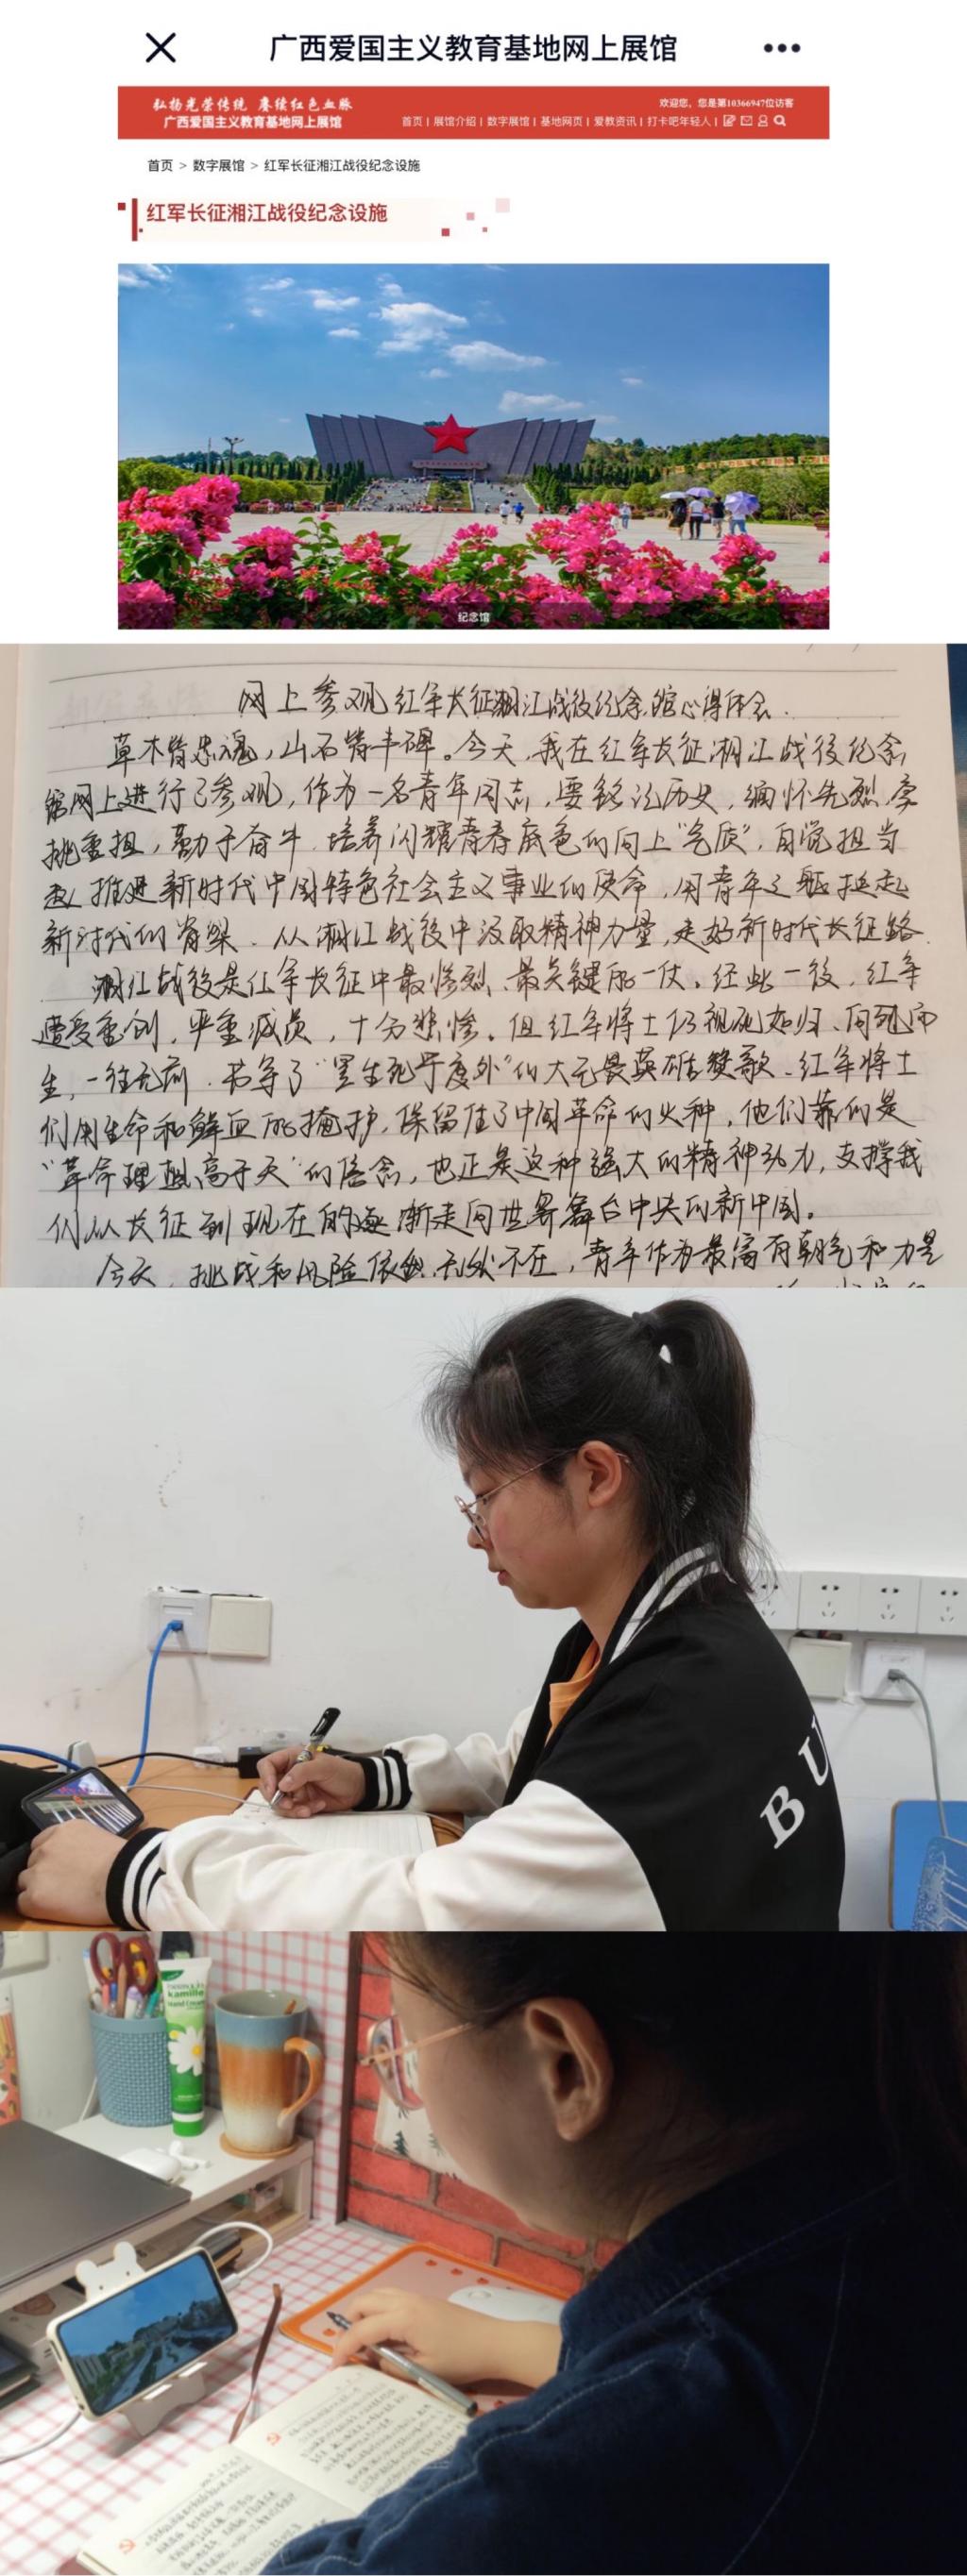 广西爱国主义教育基地网上展馆
弘扬光荣传统 赓续红色血脉
广西爱国主义教育基地网上展馆
欢迎您，您是第10366947位访客
首页 | 展馆介绍 | 数字展馆 | 基地网页 | 爱教资讯 | 打卡吧年轻人 |
首页 > 数字展馆 > 红军长征湘江战役纪念设施
红军长征湘江战役纪念设施
纪念馆
网上参观红军长征湘江战役纪念馆心得体会.
草木皆忠魂，山石皆丰碑。今天，我在红军长征湘江战役纪念
馆网上进行了参观，作为一名青年同志，要铭记历史，缅怀先烈，
挑重担，勤于奋斗，培养闪耀青春底色的向上“气质”，自觉担当
起推进新时代中国特色社会主义事业的使命，用青年之躯挺起
新时代的脊梁，从湘江战役中汲取精神力量，走好新时代长征路.
湘江战役是红军长征中最惨烈、最关键的一仗。经此一役，红军
遭受重创，严重减员，十分悲惨。但红军将士仍视死如归、向死而
生，一往无前，书写了“置生死于度外”的大无畏英雄赞歌。红军将士
们用生命和鲜血的掩护，保留住了中国革命的火种，他们靠的是
“革命理想高于天”的信念，也正是这种强大的精神动力，支撑我
们从长征到现在的逐渐走向世界舞台中央的新中国。
今天，挑战和风险依然无处不在，青年作为最富有朝气和力量
B U
kamille